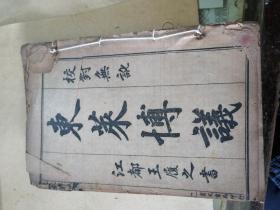 校對無訛
東萊博議
江都王廈之書